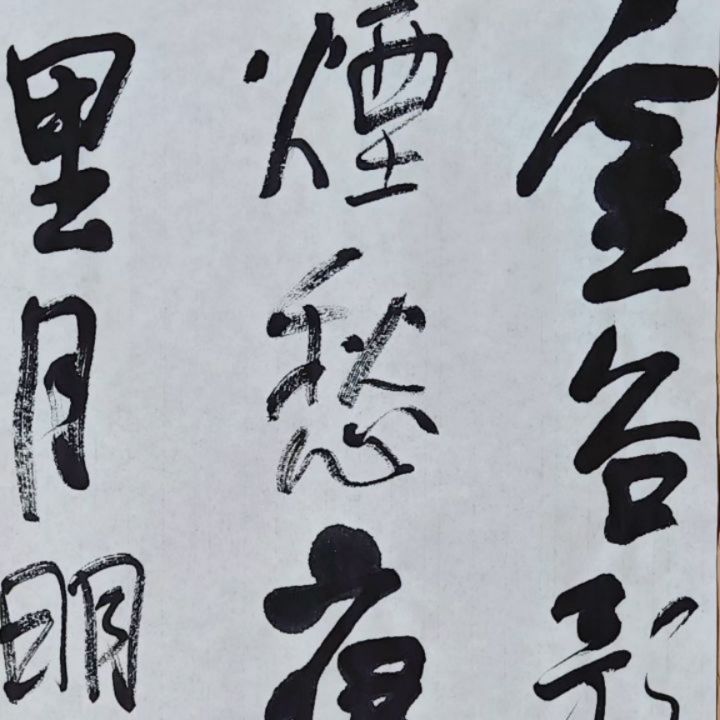 金谷
煙愁
里月明